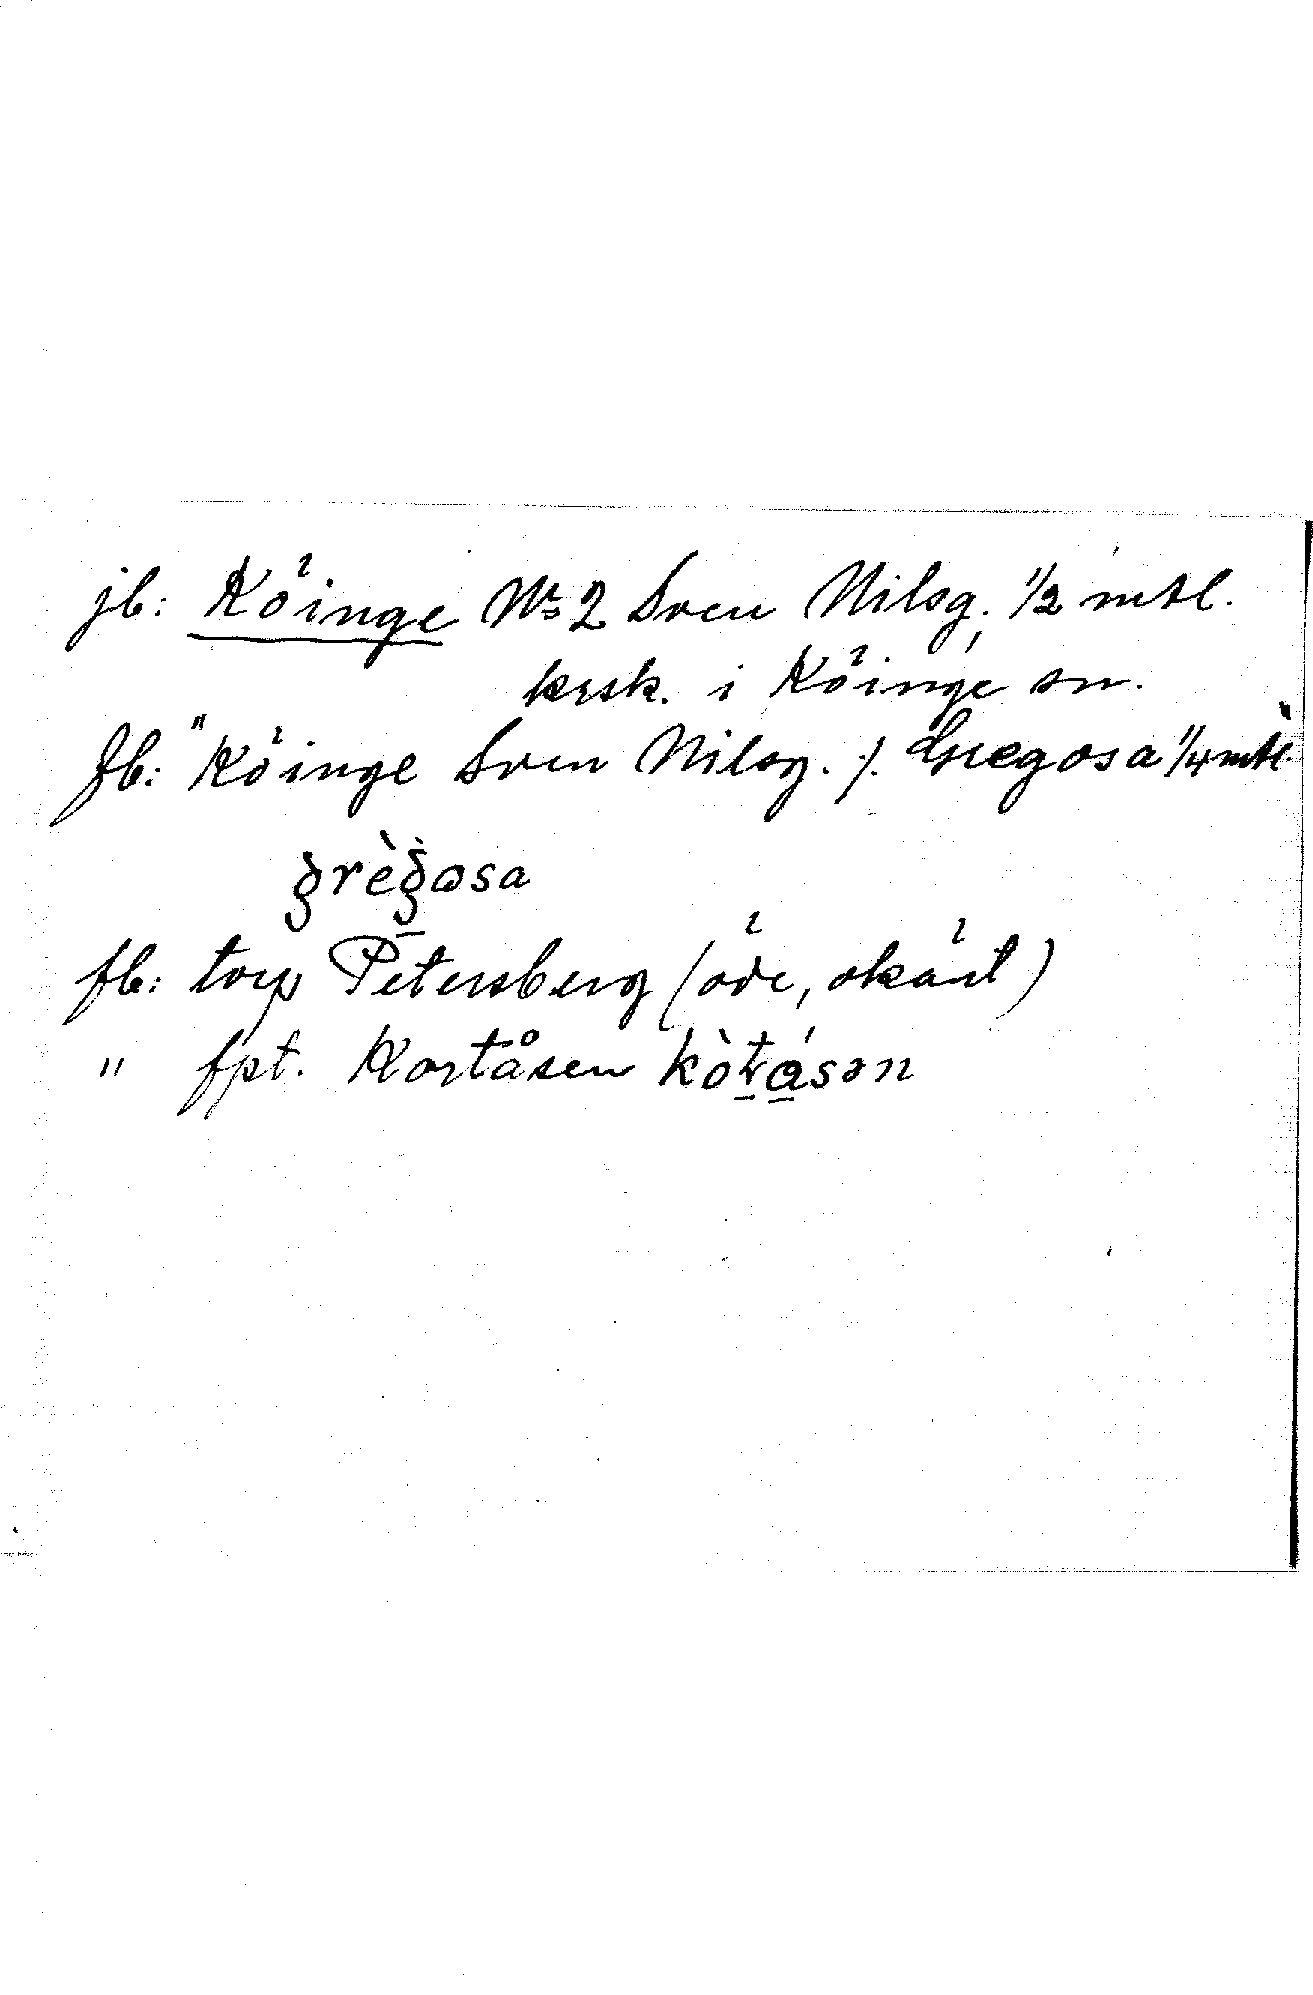 jb: Köinge № 2 Sven Nilsg. 1/2 mtl.
krsk. i Köinge sn.
fb: "Köinge Sven Nilsg. /. Gregosa 1/4 mtl."
grègosa
fb: torp Petersberg (öde, okänt)
" fpt. Kortåsen kòtåsən